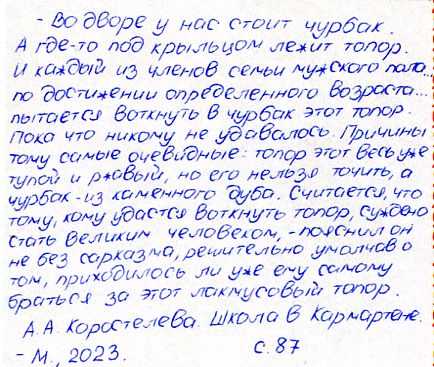 - Во дворе у нас стоит чурбак.
А где-то под крыльцом лежит топор.
И каждый из членов семьи мужского пола...
по достижении определенного возраста...
пытается воткнуть в чурбак этот топор.
Пока что никому не удавалось. Причины
тому самые очевидные: топор этот весь уже
тупой и ржавый, но его нельзя точить, а
чурбак - из каменного дуба. Считается, что
тому, кому удастся воткнуть топор, суждено
стать великим человеком, - пояснил он
не без сарказма, решительно умолчав о
том, приходилось ли уже ему самому
браться за этот лакмусовый топор.
А.А. Коростелева. Школа в Кармартене.
- М., 2023. с. 87